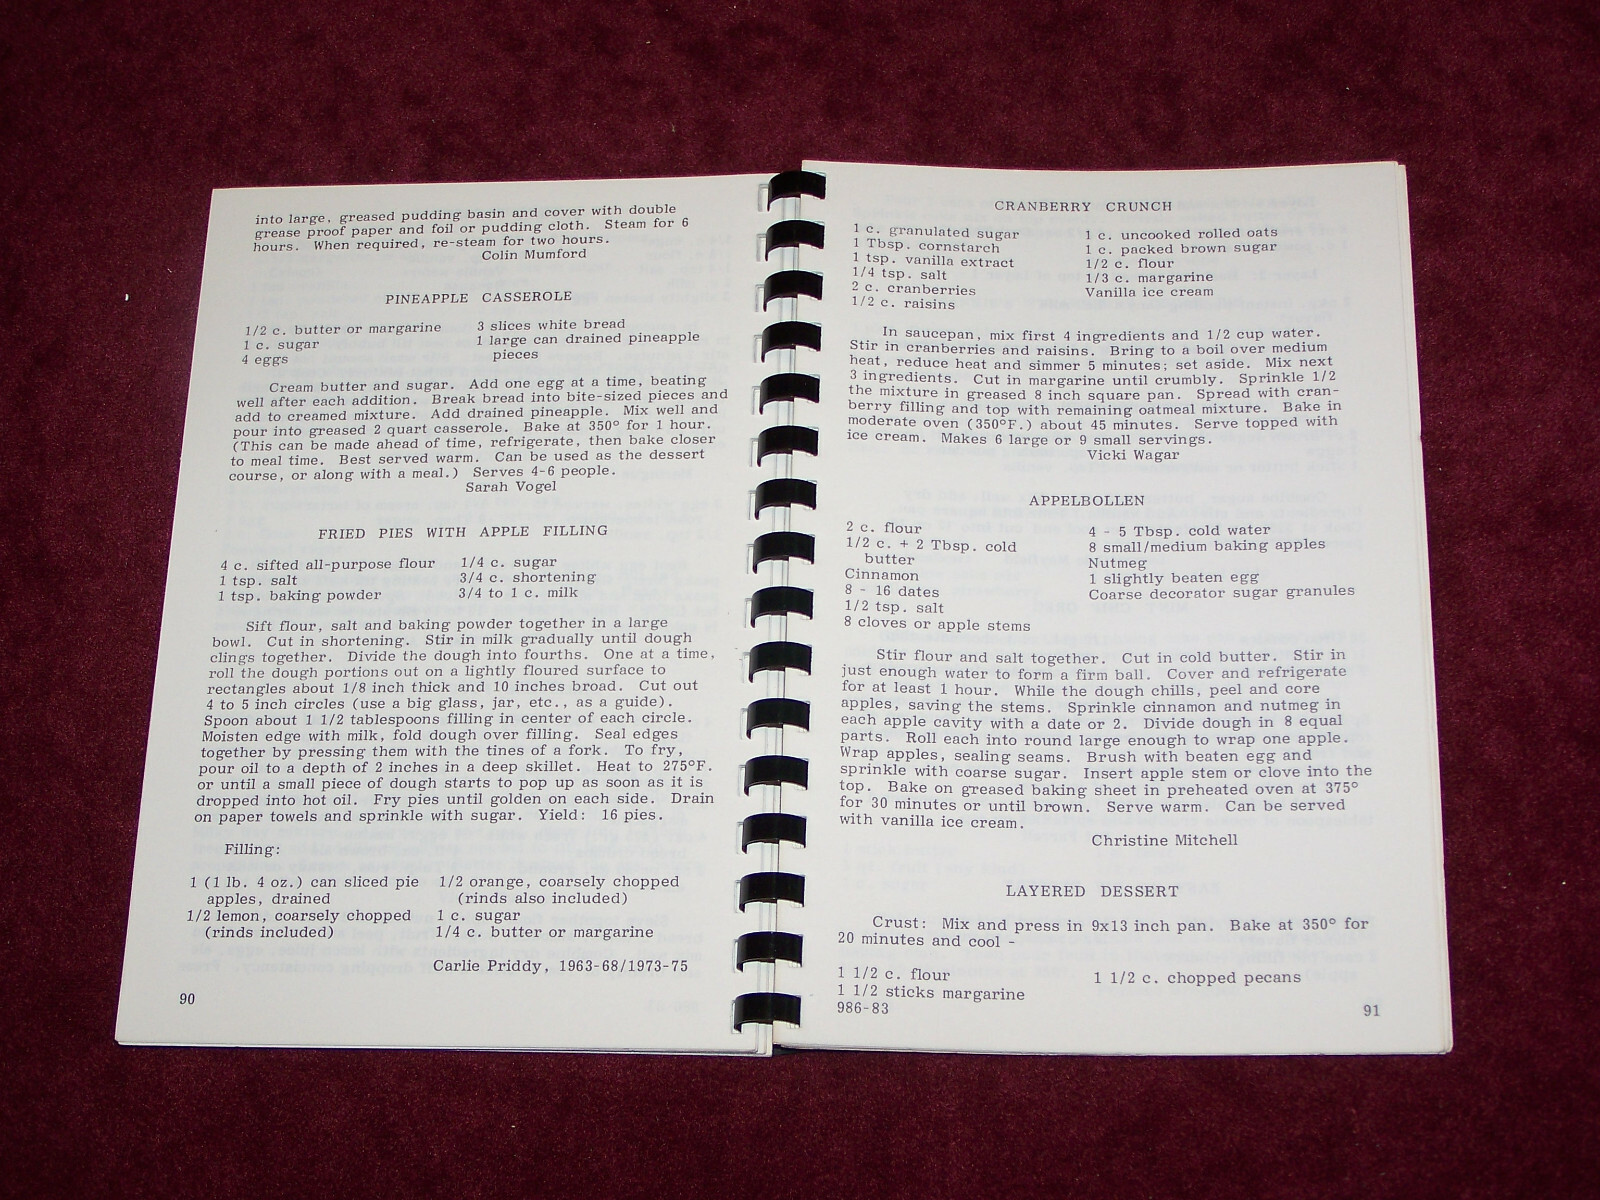 into large, greased pudding basin and cover with double
grease proof paper and foil or pudding cloth. Steam for 6
hours. When required, re-steam for two hours.
Colin Mumford
PINEAPPLE CASSEROLE
1/2 c. butter or margarine
1 c. sugar
4 eggs
3 slices white bread
1 large can drained pineapple
pieces
Cream butter and sugar. Add one egg at a time, beating
well after each addition. Break bread into bite-sized pieces and
add to creamed mixture. Add drained pineapple. Mix well and
pour into greased 2 quart casserole. Bake at 350° for 1 hour.
(This can be made ahead of time, refrigerate, then bake closer
to meal time. Best served warm. Can be used as the dessert
course, or along with a meal.) Serves 4-6 people.
Sarah Vogel
FRIED PIES WITH APPLE FILLING
4 c. sifted all-purpose flour
1 tsp. salt
1 tsp. baking powder
1/4 c. sugar
3/4 c. shortening
3/4 to 1 c. milk
Sift flour, salt and baking powder together in a large
bowl. Cut in shortening. Stir in milk gradually until dough
clings together. Divide the dough into fourths. One at a time,
roll the dough portions out on a lightly floured surface to
rectangles about 1/8 inch thick and 10 inches broad. Cut out
4 to 5 inch circles (use a big glass, jar, etc., as a guide).
Spoon about 1 1/2 tablespoons filling in center of each circle.
Moisten edge with milk, fold dough over filling. Seal edges
together by pressing them with the tines of a fork. To fry,
pour oil to a depth of 2 inches in a deep skillet. Heat to 275°F.
or until a small piece of dough starts to pop up as soon as it is
dropped into hot oil. Fry pies until golden on each side. Drain
on paper towels and sprinkle with sugar. Yield: 16 pies.
Filling:
1 (1 lb. 4 oz.) can sliced pie
apples, drained
1/2 lemon, coarsely chopped
(rinds included)
1/2 orange, coarsely chopped
(rinds also included)
1 c. sugar
1/4 c. butter or margarine
Carlie Priddy, 1963-68/1973-75
90
CRANBERRY CRUNCH
1 c. granulated sugar
1 Tbsp. cornstarch
1 tsp. vanilla extract
1/4 tsp. salt
2 c. cranberries
1/2 c. raisins
1 c. uncooked rolled oats
1 c. packed brown sugar
1/2 c. flour
1/3 c. margarine
Vanilla ice cream
In saucepan, mix first 4 ingredients and 1/2 cup water.
Stir in cranberries and raisins. Bring to a boil over medium
heat, reduce heat and simmer 5 minutes; set aside. Mix next
3 ingredients. Cut in margarine until crumbly. Sprinkle 1/2
the mixture in greased 8 inch square pan. Spread with cran-
berry filling and top with remaining oatmeal mixture. Bake in
moderate oven (350°F.) about 45 minutes. Serve topped with
ice cream. Makes 6 large or 9 small servings.
Vicki Wagar
APPELBOLLEN
2 c. flour
1/2 c. + 2 Tbsp. cold
butter
Cinnamon
8 - 16 dates
1/2 tsp. salt
8 cloves or apple stems
4 - 5 Tbsp. cold water
8 small/medium baking apples
Nutmeg
1 slightly beaten egg
Coarse decorator sugar granules
Stir flour and salt together. Cut in cold butter. Stir in
just enough water to form a firm ball. Cover and refrigerate
for at least 1 hour. While the dough chills, peel and core
apples, saving the stems. Sprinkle cinnamon and nutmeg in
each apple cavity with a date or 2. Divide dough in 8 equal
parts. Roll each into round large enough to wrap one apple.
Wrap apples, sealing seams. Brush with beaten egg and
sprinkle with coarse sugar. Insert apple stem or clove into the
top. Bake on greased baking sheet in preheated oven at 375°
for 30 minutes or until brown. Serve warm. Can be served
with vanilla ice cream.
Christine Mitchell
LAYERED DESSERT
Crust: Mix and press in 9x13 inch pan. Bake at 350° for
20 minutes and cool -
1 1/2 c. flour
1 1/2 sticks margarine
1 1/2 c. chopped pecans
986-83
91